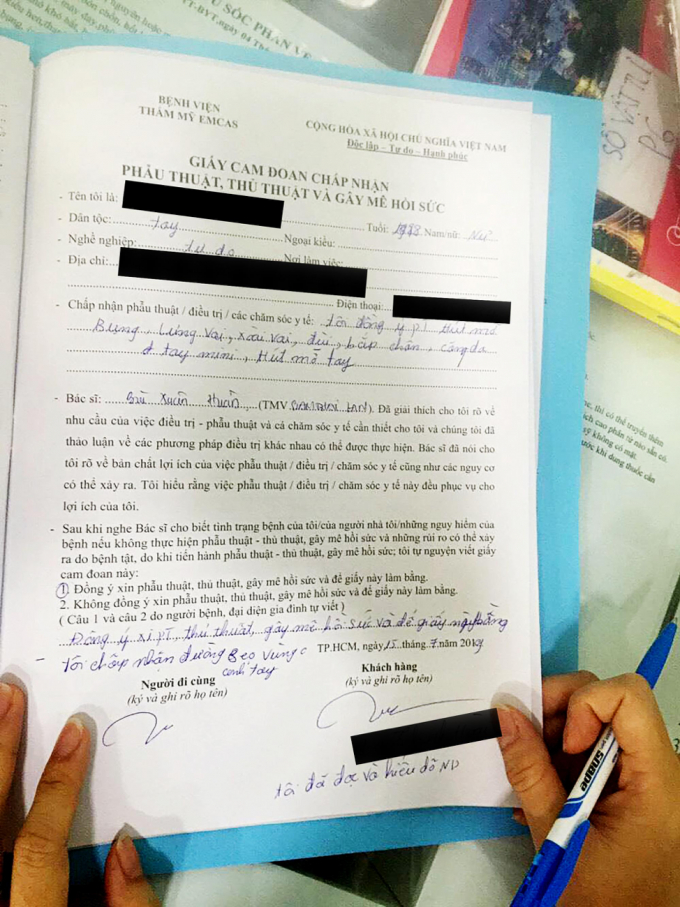 BỆNH VIỆN
THẨM MỸ EMCAS
CỘNG HÒA XÃ HỘI CHỦ NGHĨA VIỆT NAM
Độc lập – Tự do – Hạnh phúc
GIẤY CAM ĐOAN CHẤP NHẬN
PHẪU THUẬT, THỦ THUẬT VÀ GÂY MÊ HỒI SỨC
- Tên tôi là:
Tuổi: Nam/nữ: Nữ
- Dân tộc: tay Ngoại kiều:
- Nghề nghiệp: tự do Nơi làm việc:
- Địa chỉ:
Điện thoại:
- Chấp nhận phẫu thuật / điều trị / các chăm sóc y tế: tôi đồng ý PT hút mỡ
Bụng, Lưng, Vai, đùi, bắp chân, căng da
tay mini, Hút mỡ tay
- Bác sĩ: Bùi Xuân (TMV). Đã giải thích cho tôi rõ về
nhu cầu của việc điều trị - phẫu thuật và cả chăm sóc y tế cần thiết cho tôi và chúng tôi đã
thảo luận về các phương pháp điều trị khác nhau có thể được thực hiện. Bác sĩ đã nói cho
tôi rõ về bản chất lợi ích của việc phẫu thuật / điều trị / chăm sóc y tế cũng như các nguy cơ
có thể xảy ra. Tôi hiểu rằng việc phẫu thuật / điều trị / chăm sóc y tế này đều phục vụ cho
lợi ích của tôi.
- Sau khi nghe Bác sĩ cho biết tình trạng bệnh của tôi/của người nhà tôi/những nguy hiểm của
bệnh nếu không thực hiện phẫu thuật - thủ thuật, gây mê hồi sức và những rủi ro có thể xảy
ra do bệnh tật, do khi tiến hành phẫu thuật - thủ thuật, gây mê hồi sức; tôi tự nguyện viết giấy
cam đoan này:
1. Đồng ý xin phẫu thuật, thủ thuật, gây mê hồi sức và để giấy này làm bằng.
2. Không đồng ý xin phẫu thuật, thủ thuật, gây mê hồi sức và để giấy này làm bằng.
( Câu 1 và câu 2 do người bệnh, đại diện gia đình tự viết )
Đồng ý xi PT, thủ thuật, gây mê hồi sức và để giấy này bằng
TP.HCM, ngày 15 tháng 7 năm 20
- tôi chấp nhận đường sẹo vùng
cánh tay
Người đi cùng
(ký và ghi rõ họ tên)
Khách hàng
(ký và ghi rõ họ tên)
tôi đã đọc và hiểu
SỔ VẬT TƯ
P6
snape